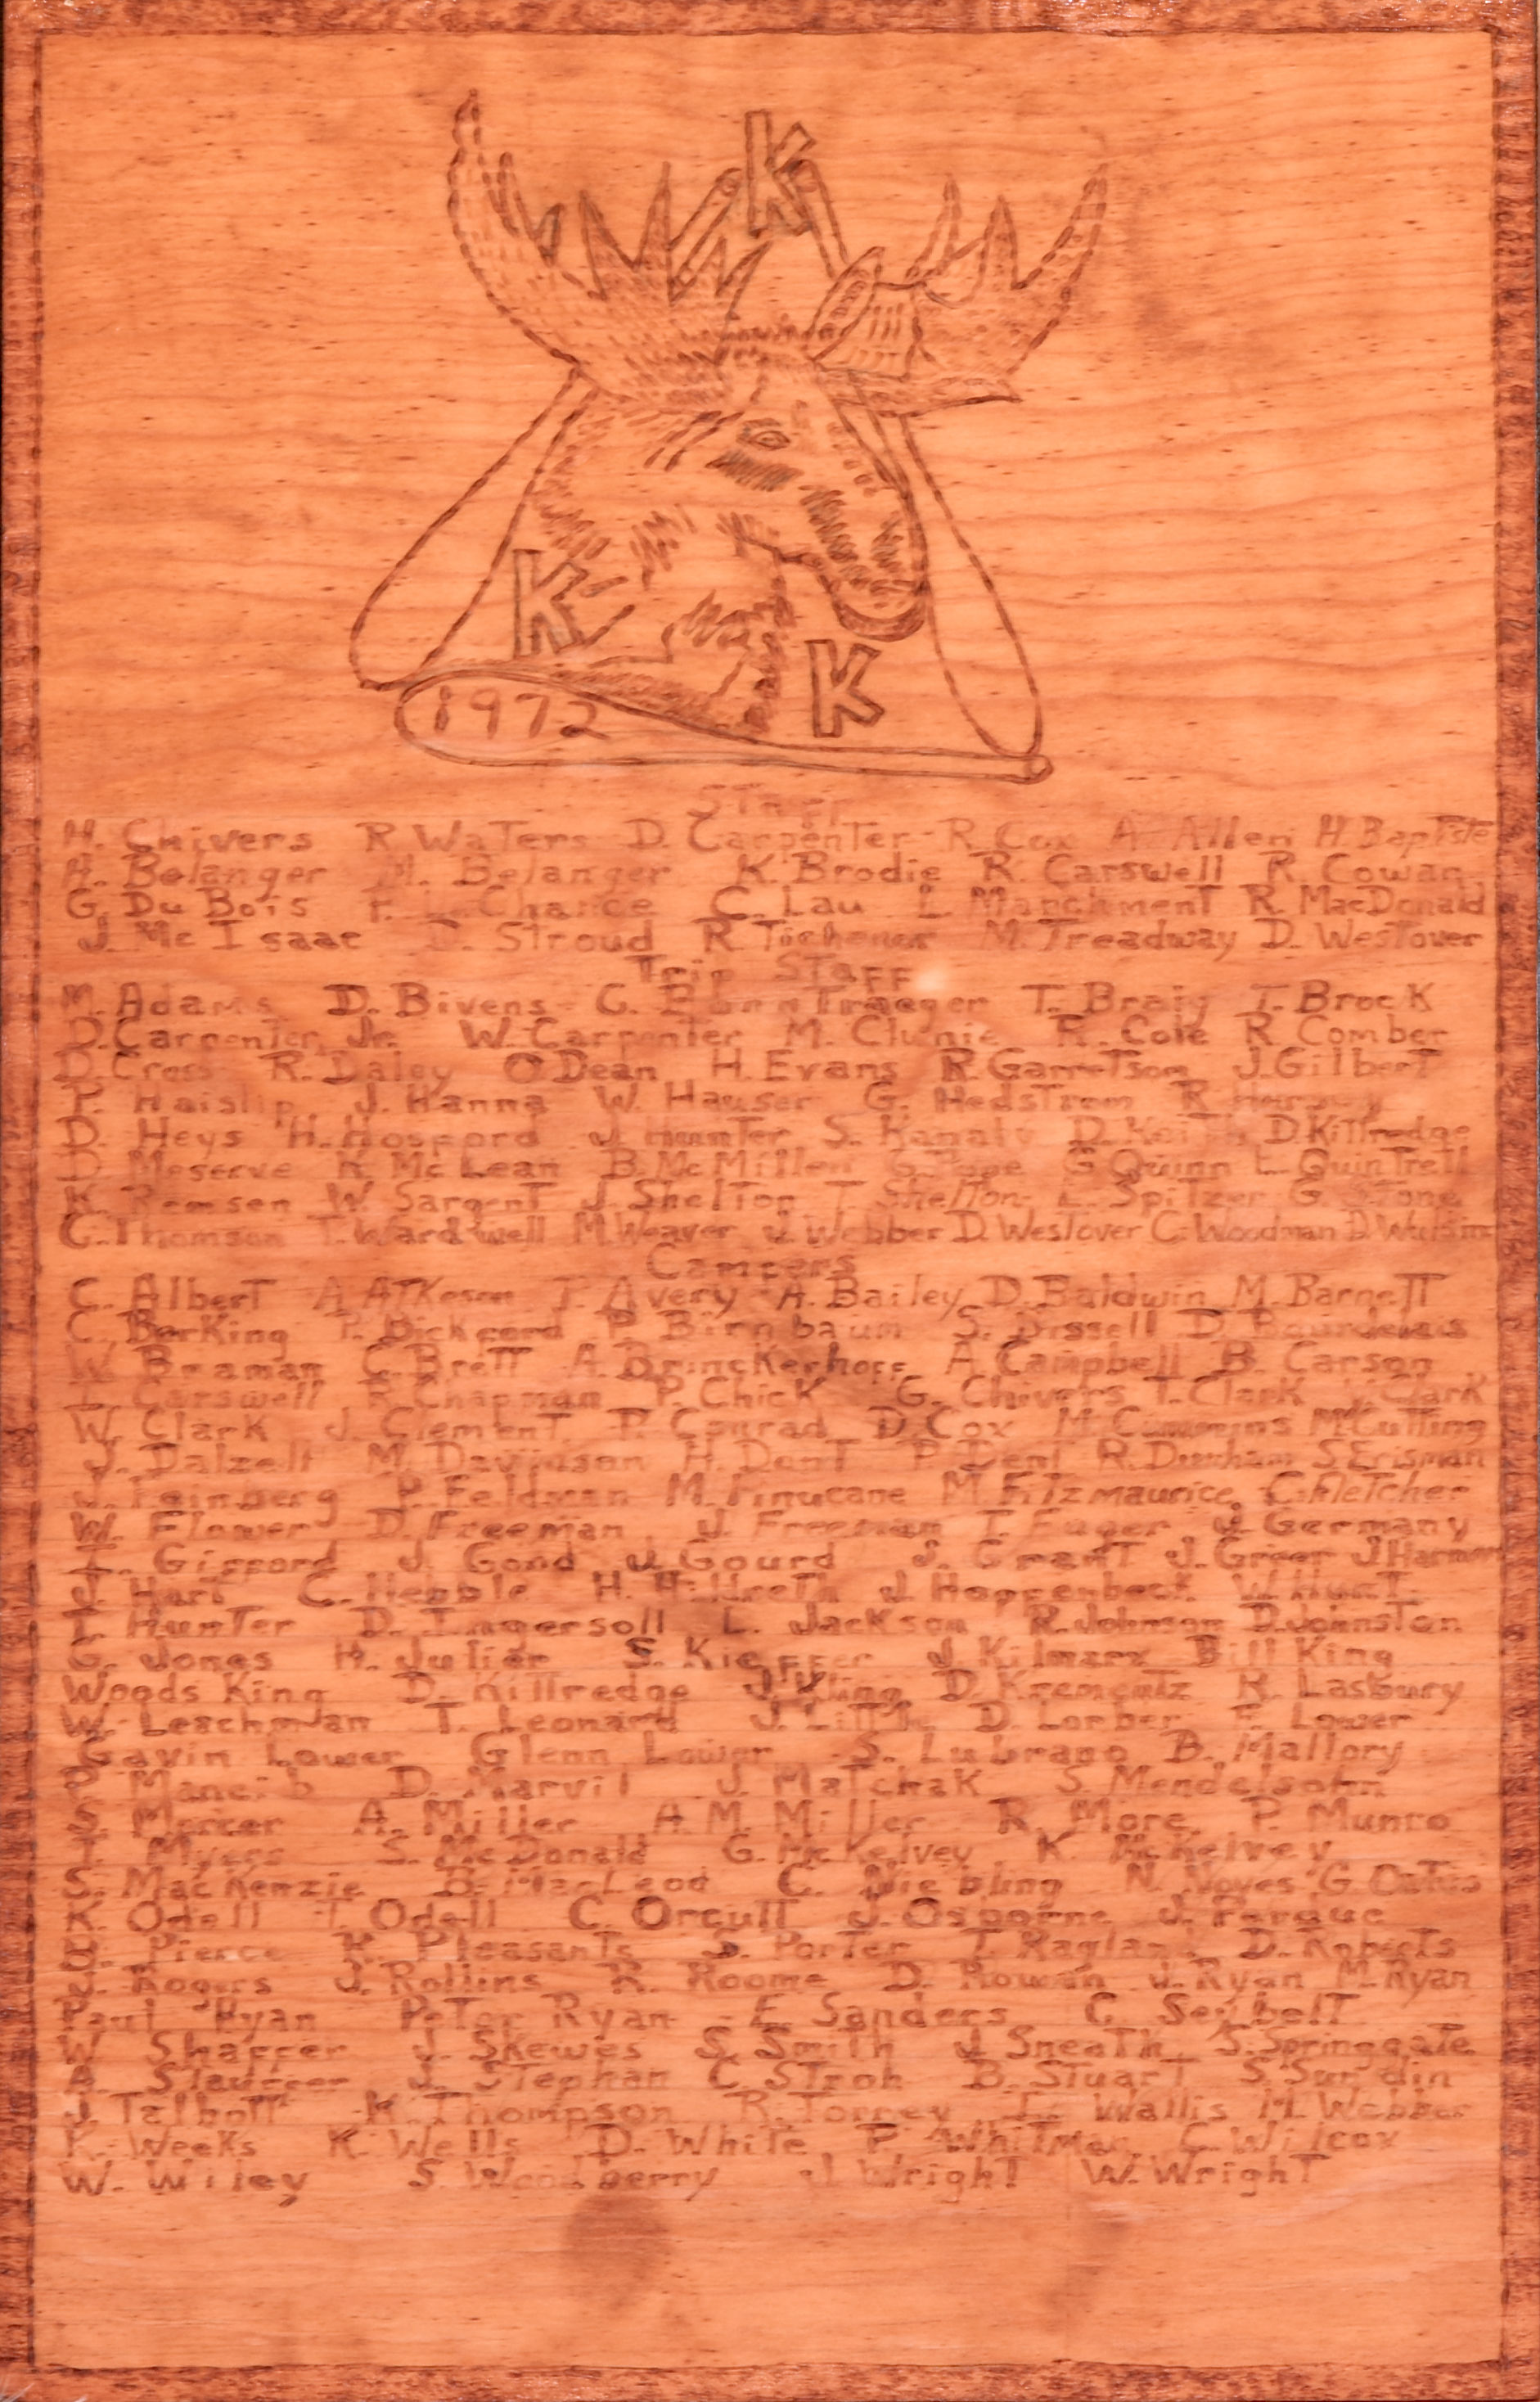 K
K
K
1972
Staff
H. Chivers R. Waters D. Carpenter R. Cox A. Allen H. Baptiste
H. Belanger M. Belanger K. Brodie R. Carswell R. Cowan
G. Du Bois LaChance C. Lau L. Marchment R. MacDonald
J. Mc Isaac D. Stroud R. Tichenor M. Treadway D. Westover
Trip Staff
M. Adams D. Bivens G. T. Braig T. Brock
D. Carpenter, Jr. W. Carpenter M. Clunie R. Cole R. Comber
D. Cross R. Daley O Dean H. Evans R. Garretson J. Gilbert
T. Haislip J. Hanna W. Hauser G. Hedstrom R.
D. Heys H. Hosford J. Hunter S. Kanaly D. Keith D. Kittredge
D. Meserve R. McLean B. McMillen G. Pope G. Quinn L. Quintrell
K. Remsen W. Sargent J. Shelton T. Shelton L. Spitzer G. Stone
G. Thomson T. Wardwell M. Weaver J. Webber D. Westover C. Woodman D. Wulsin
Campers
C. Albert A. Atkeson T. Avery A. Bailey D. Baldwin M. Barnett
C. Berking P. Bickford P. Birnbaum S. Bissell D. Bourdelais
W. Braman C. Brett A. Brinckerhoff A. Campbell B. Carson
T. Carswell R. Chapman P. Chick G. Chivers T. Clark V. Clark
W. Clark J. Clement T. Conrad D. Cox M. Cummins M. Cutting
J. Dalzell M. Davidson H. Dent P. Dent R. Dunham S. Erisman
J. Feinberg P. Feldman M. Finucane M. Fitzmaurice C. Fletcher
W. Flower D. Freeman J. Freeman T. Fuger J. Germany
T. Gifford J. Gond J. Gourd J. Grant J. Greer J. Harmon
J. Hart C. Hebble H. Hildreth J. Hoffenbeck W. Hunt
T. Hunter D. Ingersoll L. Jackson R. Johnson D. Johnston
G. Jones H. Julier S. Kieffer J. Kilmarx Bill King
Woods King D. Kittredge J. Kling D. Krementz R. Lasbury
W. Leachman T. Leonard J. Little D. Lorber F. Lower
Gavin Lower Glenn Lower S. Lubrano B. Mallory
P. D. Marvil J. Matchak S. Mendelsohn
S. Mercer A. Miller A. M. Miller R. More P. Munro
T. Myers S. McDonald G. McKelvey K. McKelvey
S. MacKenzie B. MacLeod C. Niebling N. Noyes G. Oates
K. Odell T. Odell C. Orcutt J. Osborne J. Pardue
B. Pierce R. Pleasants S. Porter T. Ragland D. Roberts
J. Rogers J. Rollins R. Roome D. Rowan J. Ryan M. Ryan
Paul Ryan Peter Ryan E. Sanders C. Seybolt
W. Shaffer J. Skewes S. Smith J. Sneath S. Springgate
A. Stauffer J. Stephan C. Stroh B. Stuart S. Sundin
J. Talbott K. Thompson R. Torrey L. Wallis M. Webber
K. Weeks K. Wells D. White P. Whitman C. Wilcox
W. Wiley S. Woodberry J. Wright W. Wright